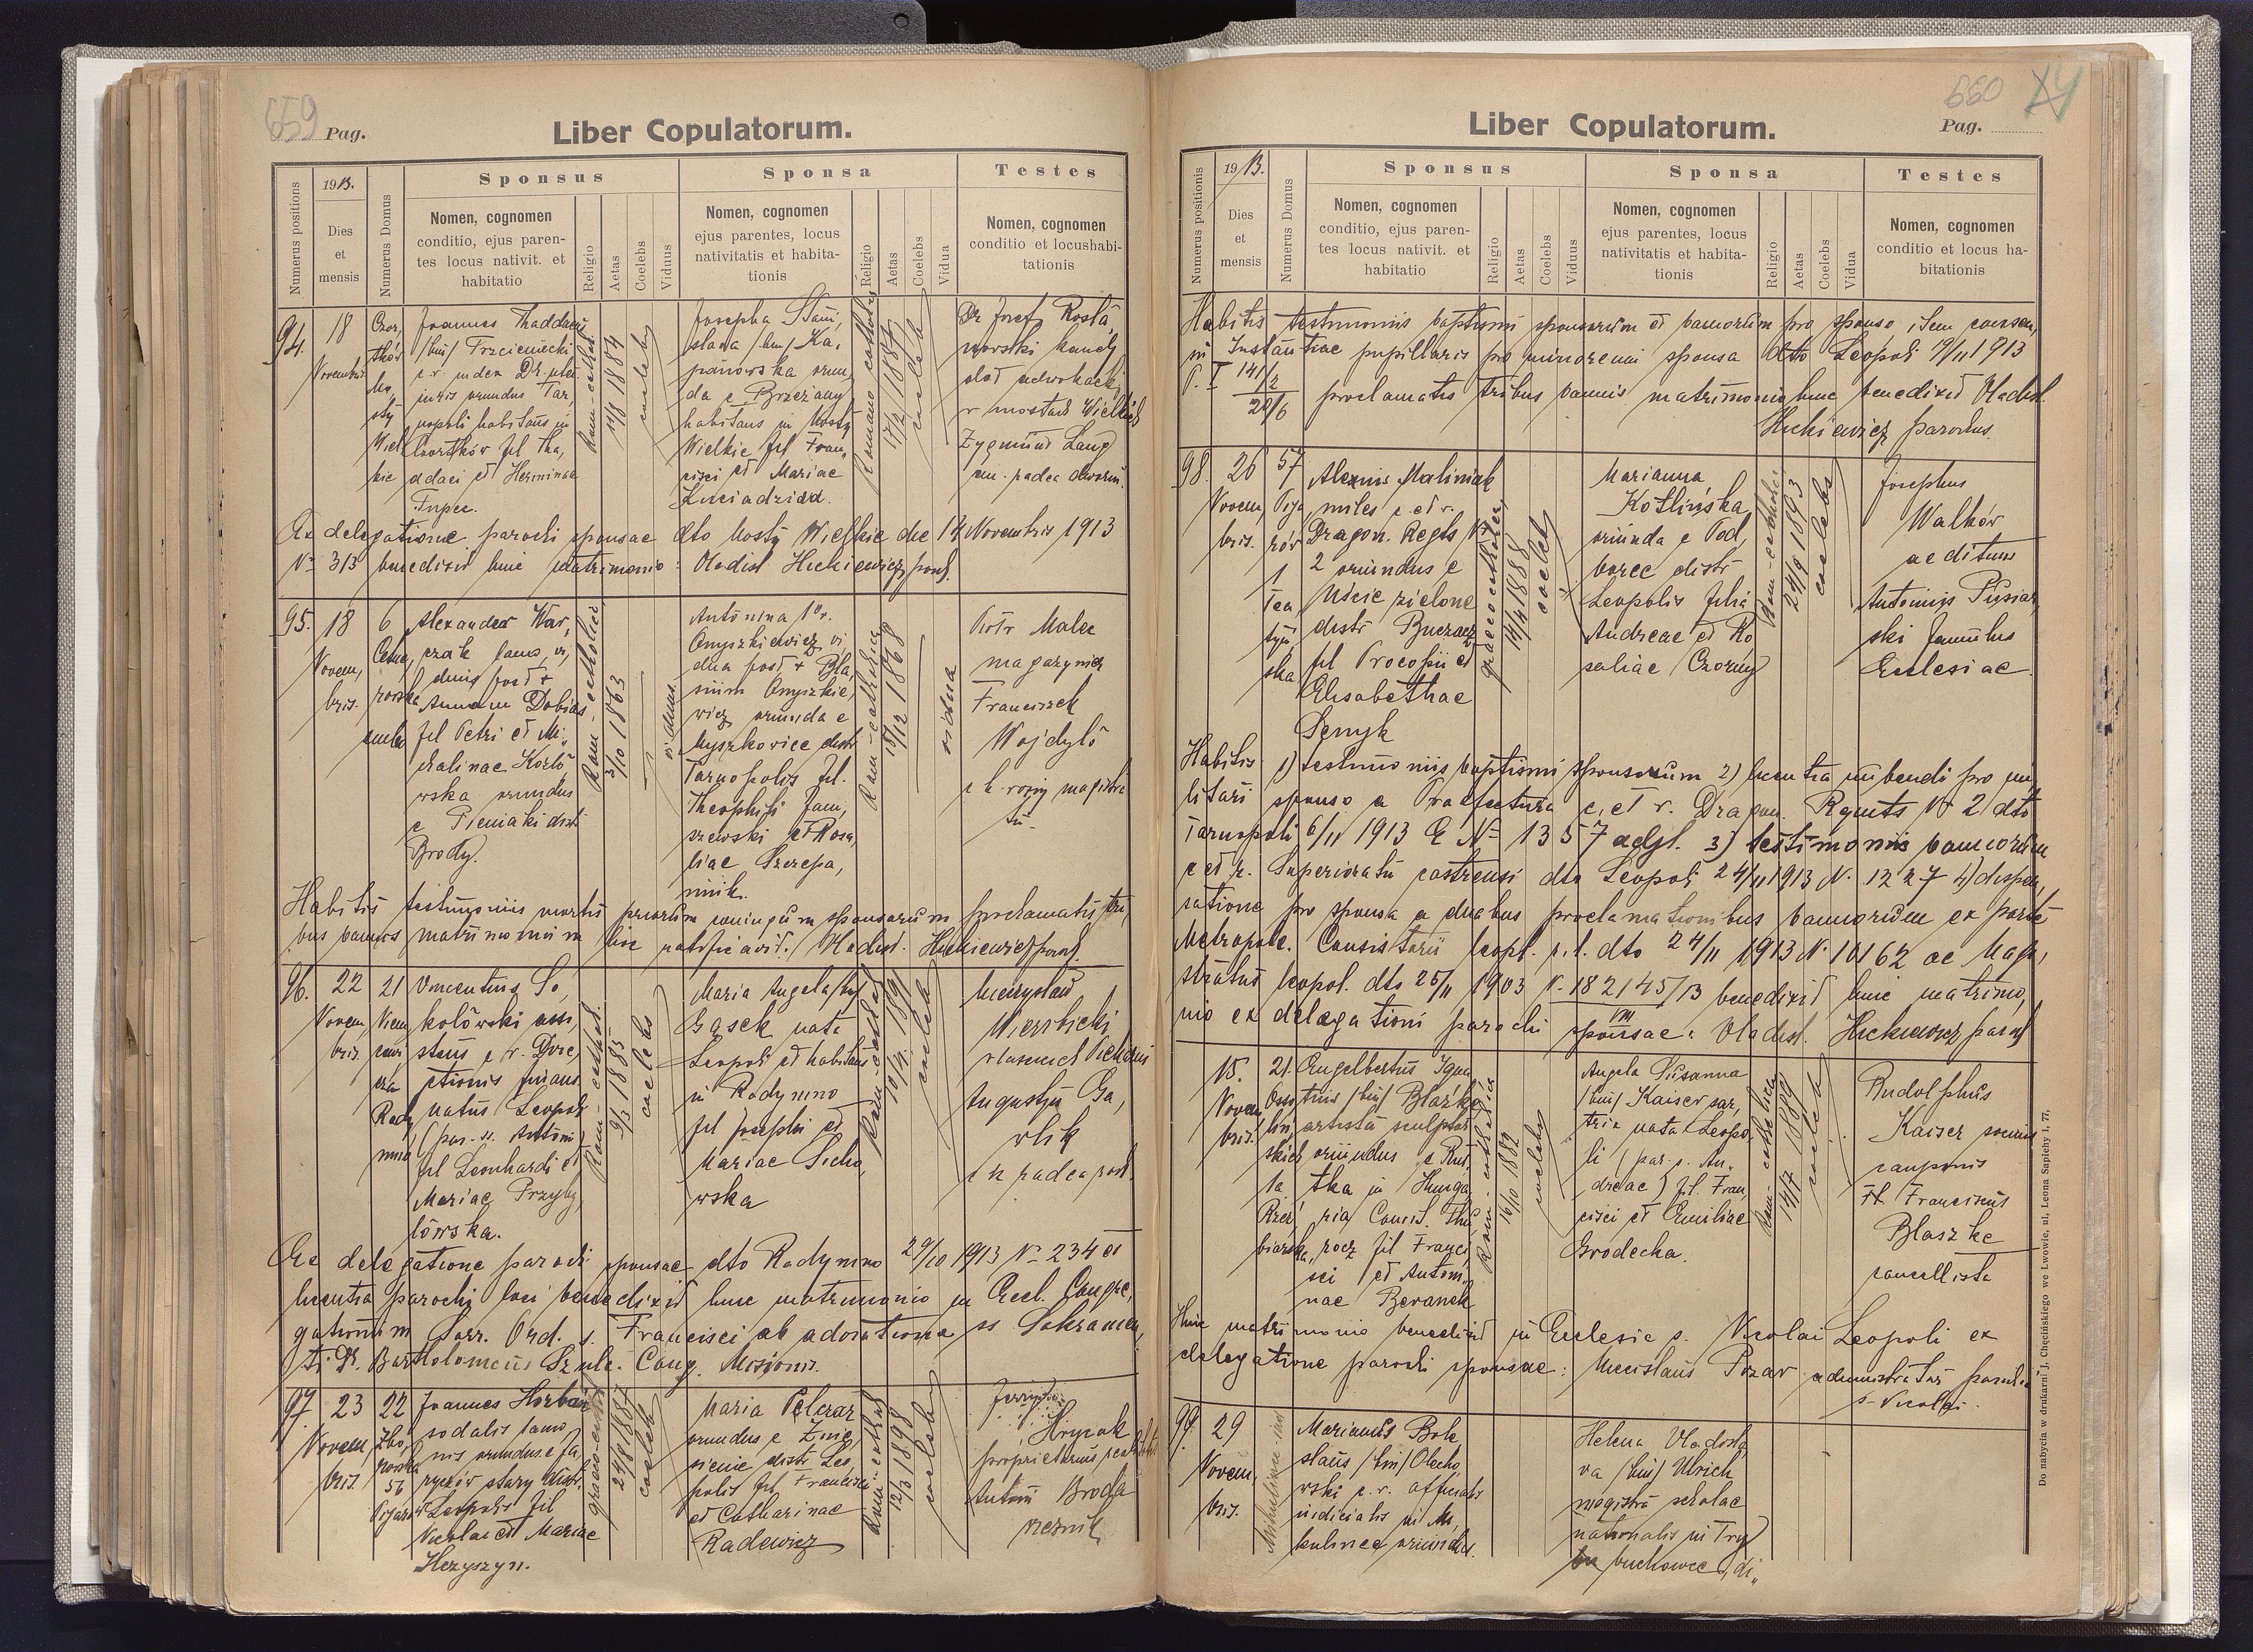 659 Pag.
Liber Copulatorum.
Numerus positionis
1913.
Dies
et
mensis
Numerus Domus
Sponsus
Nomen, cognomen
conditio, ejus paren-
tes locus nativit. et
habitatio
Religio
Aetas
Coelebs
Viduus
Sponsa
Nomen, cognomen
ejus parentes, locus
nativitatis et habita-
tionis
Religio
Aetas
Coelebs
Vidua
Testes
Nomen, cognomen
conditio et locus habi-
tationis
94.
18
Novembris
Joannes Thaddaeus
/bin/ Trzcieniecki
c. r. iudex Dr utr.
iuris oriundus Tar,
nopoli habitans in
Czortków fil Tha,
adaei et Herminae
Tupec.
Rom-cathol.
1884
coelebs
Josepha Stani,
slava /bin/ Ka,
panowska oriun
da e Brzeżany
habitans in Mosty
Wielkie fil Fran,
cisci et Mariae
Romano catholic
17/2 1887
coelebs
Dr Josef
kandy
dat adwokacki
w Mostach Wielkich
Zygmund Lang
Ex delegatione parochi sponsae dto Mosty Wielkie die 14 Novembris 1913
No 313 benedixit huic matrimonio: Vladisl Hickiewicz par.
95.
18
Novem,
bris.
6
Alexander War,
czak
duus post +
Annam Dobias
fil Petri et Mi,
chalinae Kozło
wska oriundus
e Pieniaki distr
Brody.
Rom-catholic
3/10 1863
viduus
Antonina 1o v.
Onyszkiewicz vi
dua post + Bla,
sium Onyszkie,
wicz oriunda e
Myszkowice distr
Tarnopolis fil.
Theophili Jani,
szewski et Rosa,
liae Szczepa,
nik.
Rom-catholica
15/12 1868
vidua
Piotr Malec
magazynier
Franciszek
Wojdyło
Habitis testimoniis mortis priorum coniugum sponsorum proclamatis tri,
bus bannis matrimonium hoc ratificavit: Vladisl. Hickiewicz par.
96.
22
Novem
bris
21
Vincentius So,
kołowski assi,
stens c. r. Dyre,
ctionis finans.
natus Leopoli
(par. s. Antoni)
fil Leonhardi et
Mariae Przyby
łowska.
Rom-cathol.
9/3 1885
coelebs
Maria Angela /bin/
Gąsek nata
Leopoli et habitans
in Radymno
fil Josephi et
Mariae Sicho,
wska
Rom-cathol
1891
coelebs
Mieczysław
Wierzbicki
Augustyn Ga,
wlik
Ex delegatione parochi sponsae dto Radymno 29/10 1913 No 234 et
licentia parochi loci benedixit huic matrimonio in Eccl. Congre,
gationum Sorr. Ord. s. Francisci ab adoratione ss Sakramen,
ti Dr. Bartholomeus Szulc. Cong. Missionis.
97.
23
Novem
bris.
22
56
Joannes Horbań
sodalis lanio,
nis oriundus e Ja
ryczów stary distr.
Leopolis fil
Nicolai et Mariae
Hryszyn.
graeco-cathol
24/8 1887
coelebs
Maria Pelczar
oriundus e Znie,
sienie distr Leo,
polis fil, Francisci
et Catharinae
Radewicz
Rom-cathol
12/3 1898
coelebs
Hrycak
proprietarius
Antoni Broda
rzeźnik

660
Pag.
Liber Copulatorum.
Numerus positionis
1913.
Dies
et
mensis
Numerus Domus
Sponsus
Nomen, cognomen
conditio, ejus paren-
tes locus nativit. et
habitatio
Religio
Aetas
Coelebs
Viduus
Sponsa
Nomen, cognomen
ejus parentes, locus
nativitatis et habita-
tionis
Religio
Aetas
Coelebs
Vidua
Testes
Nomen, cognomen
conditio et locus ha-
bitationis
Habitis testimoniis baptismi sponsorum et bannorum pro sponso, item consen,
in Instantiae pupillaris pro minorenni sponsa dto Leopoli 19/11 1913
proclamatis tribus bannis matrimonio huic benedixit Vladisl.
Hickiewicz parochus.
98.
26
Novem,
bris.
57
Alexius Maliniak
miles c. et r.
Dragon. Regts No
2 oriundus e
Uście zielone
distr Buczacz
fil Procopii et
Elisabethae
Senyk
graeco cathol.
14/4 1888
coelebs
Marianna
Kotlińska
oriunda e Pod,
borce distr
Leopolis filia
Andreae et Ro
saliae Czorny
Rom-catholic
24/9 1893
coelebs
Josephus
Walków
aedituus
Antonius Pusiar
ski famulus
Ecclesiae
Habitis 1) testimoniis baptismi sponsorum 2) licentia nubendi pro mi,
litari sponso a Praefectura c. et r. Dragon. Regmts No 2 dto
Tarnopoli 6/11 1913 E No 1357 adjt. 3) testimoniis bannorum
c et r. Superioratu castrensi dto Leopoli 24/11 1913 N. 1227 4) dispen,
satione pro sponsa a duabus proclamationibus bannorum ex parte
Metropolit. Consistorii leopl. r. l. dto 24/11 1913 N 10162 ac Magi,
stratus leopol. dto 25/11 1903 N. 182145/13 benedixit huic matrimo,
VIII
nio ex delegationi parochi sponsae: Vladisl. Hickiewicz paroch
15.
Novem
bris.
21
Engelbertus Igna
tius /bin/ Blaszke
artista sculptor
oriundus e Rut
tka in Hunga
ria Comit. Thu,
rocz fil Franci,
sci et Antoni
nae Beranek
Rom-catholica
16/10 1882
coelebs
Angela Susanna
/bin/ Kaiser sar,
trix nata Leopo
li (par. s. An,
dreae) fil. Fran,
cisci et Emiliae
Grodecka.
Rom-catholica
14/7 1889
coelebs
Rudolphus
Kaiser socius
cauponis
Franciscus
Blaszke
cancellista
Huic matrimonio benedixit in Ecclesie s. Nicolai Leopoli ex
delegatione parochi sponsae: Miecislaus Pozar administrator parochiae
s. Nicolai.
99.
29
Novem,
bris.
Mikulińce
Marianus Bole
slaus /bin/ Olecho
wski c. r. officialis
iudicialis in Mi,
kulince oriundus.
Helena Vladisla
va /bin/ Ulrich
magistra scholae
nationalis in Try
buchowce, di,
Do nabycia w drukarni J. Chęcińskiego we Lwowie, ul, Leona Sapiehy l, 77,